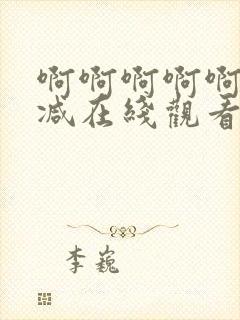 啊啊啊啊啊
减在綫觀看
李巍